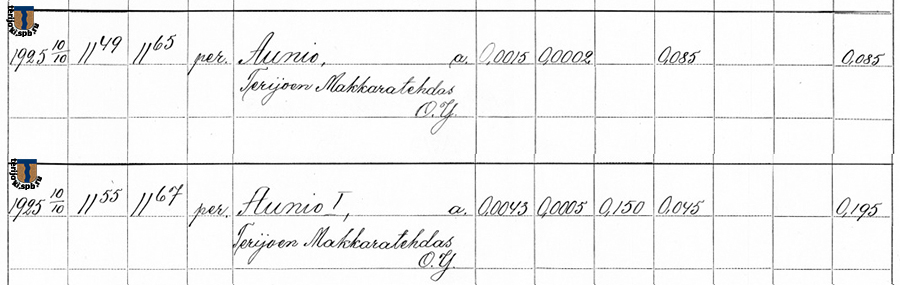 terijoki.spb.ru
1925 10/10 11 49 11 65 per. Aunio, a. 0,0015 0,0002 0,085 0,085
Terijoen Makkaratehdas
O.Y.
terijoki.spb.ru
1925 10/10 11 55 11 67 per. Aunio I, a. 0,0043 0,0005 0,150 0,045 0,195
Terijoen Makkaratehdas
O.Y.